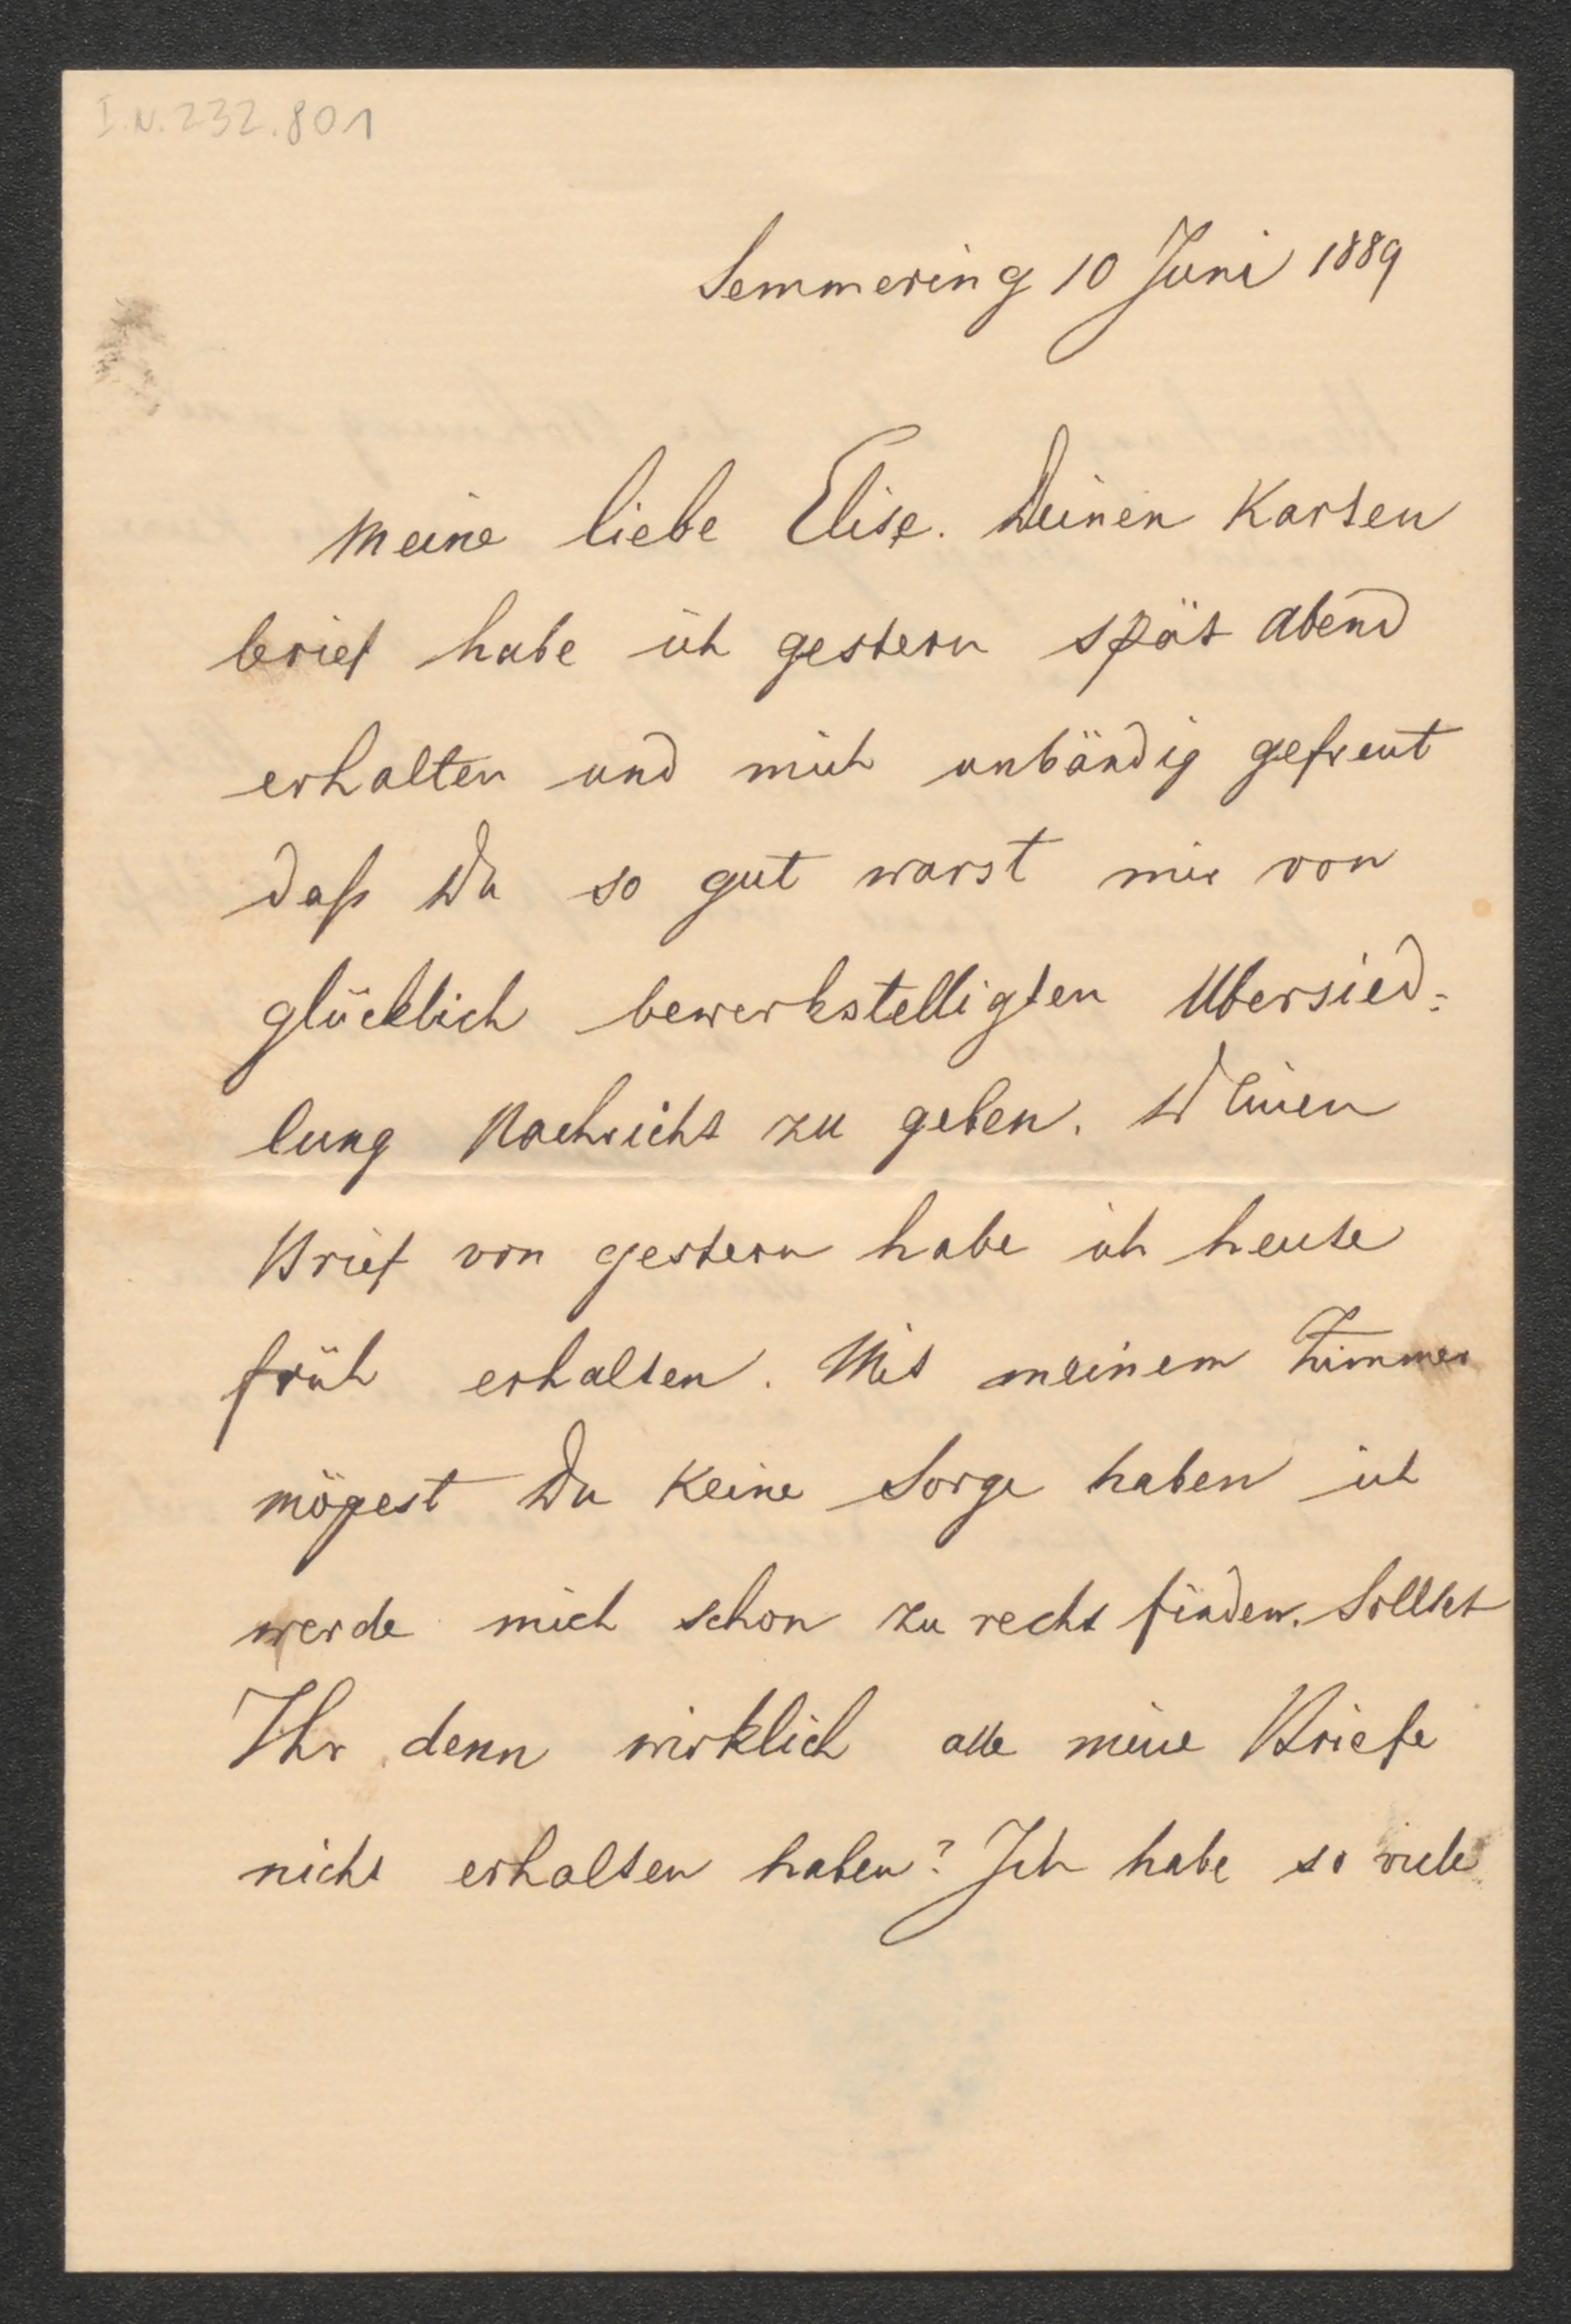 I.N. 232.801
Semmering 10 Juni 1889
Meine liebe Elise. Deinen Karten
brief habe ich gestern spät abend
erhalten und mich unbändig gefreut
daß Du so gut warst mir von
glücklich bewerkstelligten Übersied=
lung Nachricht zu geben. Deinen
Brief von gestern habe ich heute
früh erhalten. Mit meinem Zimmer
mögest Du keine Sorge haben ich
werde mich schon zu recht finden. Solltet
Ihr denn wirklich alle meine Briefe
nicht erhalten haben? Ich habe so viele